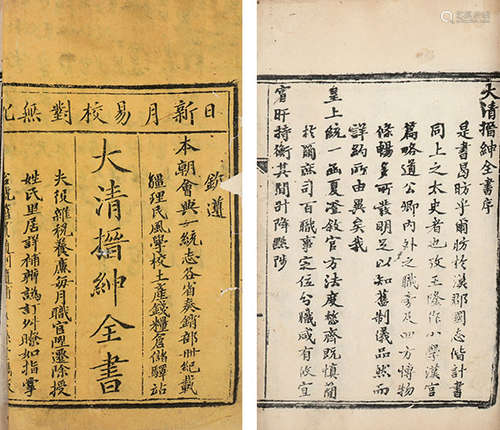 日新月易校對無
欽遵
本朝會典一統志各省奏銷部冊紀載
疆理民風學校土產錢糧倉儲驛站
大清搢紳全書
夫役雜稅養廉每月職官陞遷除授
姓氏里居詳補聯譌訂舛瞭如指掌
大清搢紳全書序
是書曷昉乎爾昉於漢郡國志偕計書
同上之太史者也攷王隆作小學漢官
篇略道公卿內外之職旁及四方博物
條暢多所發明足以知舊制儀品然而
詳約所由異矣我
皇上統一函夏澄敘官方法度懋齊既慎簡
於爾庶司百職事定位分職咸有攸宜
宵旰持衡其間升降黜陟